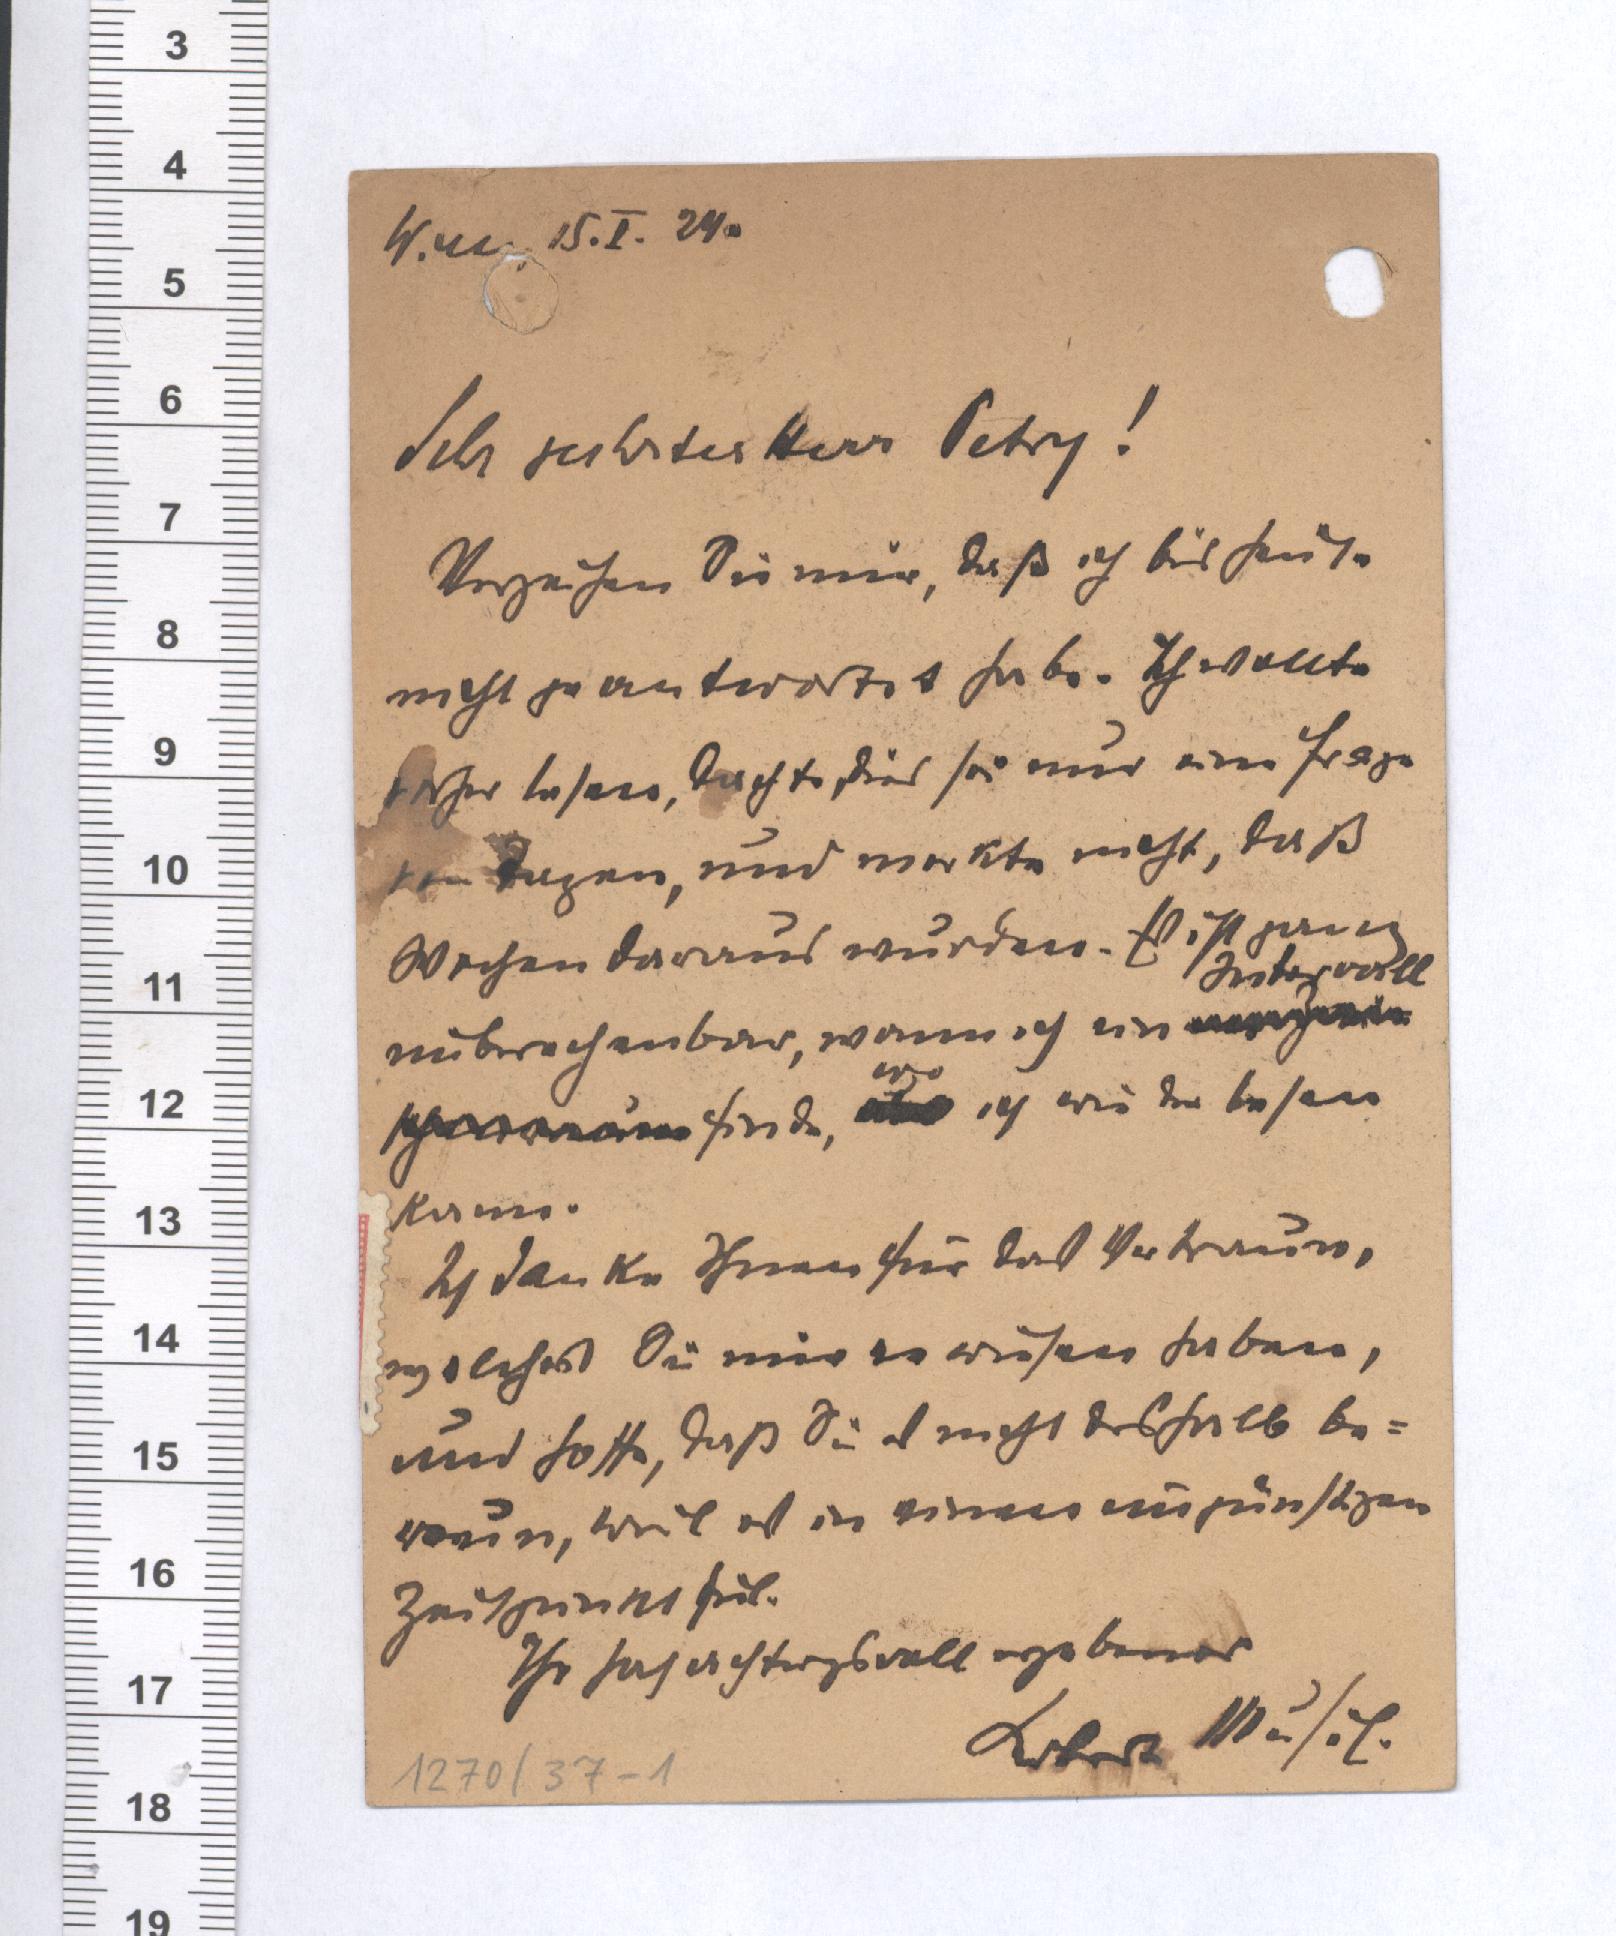 3
4
5
6
7
8
9
10
11
12
13
14
15
16
17
18
19
Wien, 15.I.24.
Sehr geehrter Herr Petry!
Verzeihen Sie mir, daß ich bis heute
nicht geantwortet habe. Ich wollte
vorher lesen, dachte, dies sei nur eine Frage
von Tagen, und merkte nicht, daß
Wochen daraus wurden. Es ist ganz
Intervall
unberechenbar, wann ich ein
wo
finde, ich wieder lesen
kann.
Ich danke Ihnen für das Vertrauen,
welches Sie mir erwiesen haben,
und hoffe, daß Sie es nicht deshalb be=
reun, weil es in einen ungünstigen
Zeitpunkt fiel.
Ihr hochachtungsvoll ergebener
Robert Musil.
1270/37-1